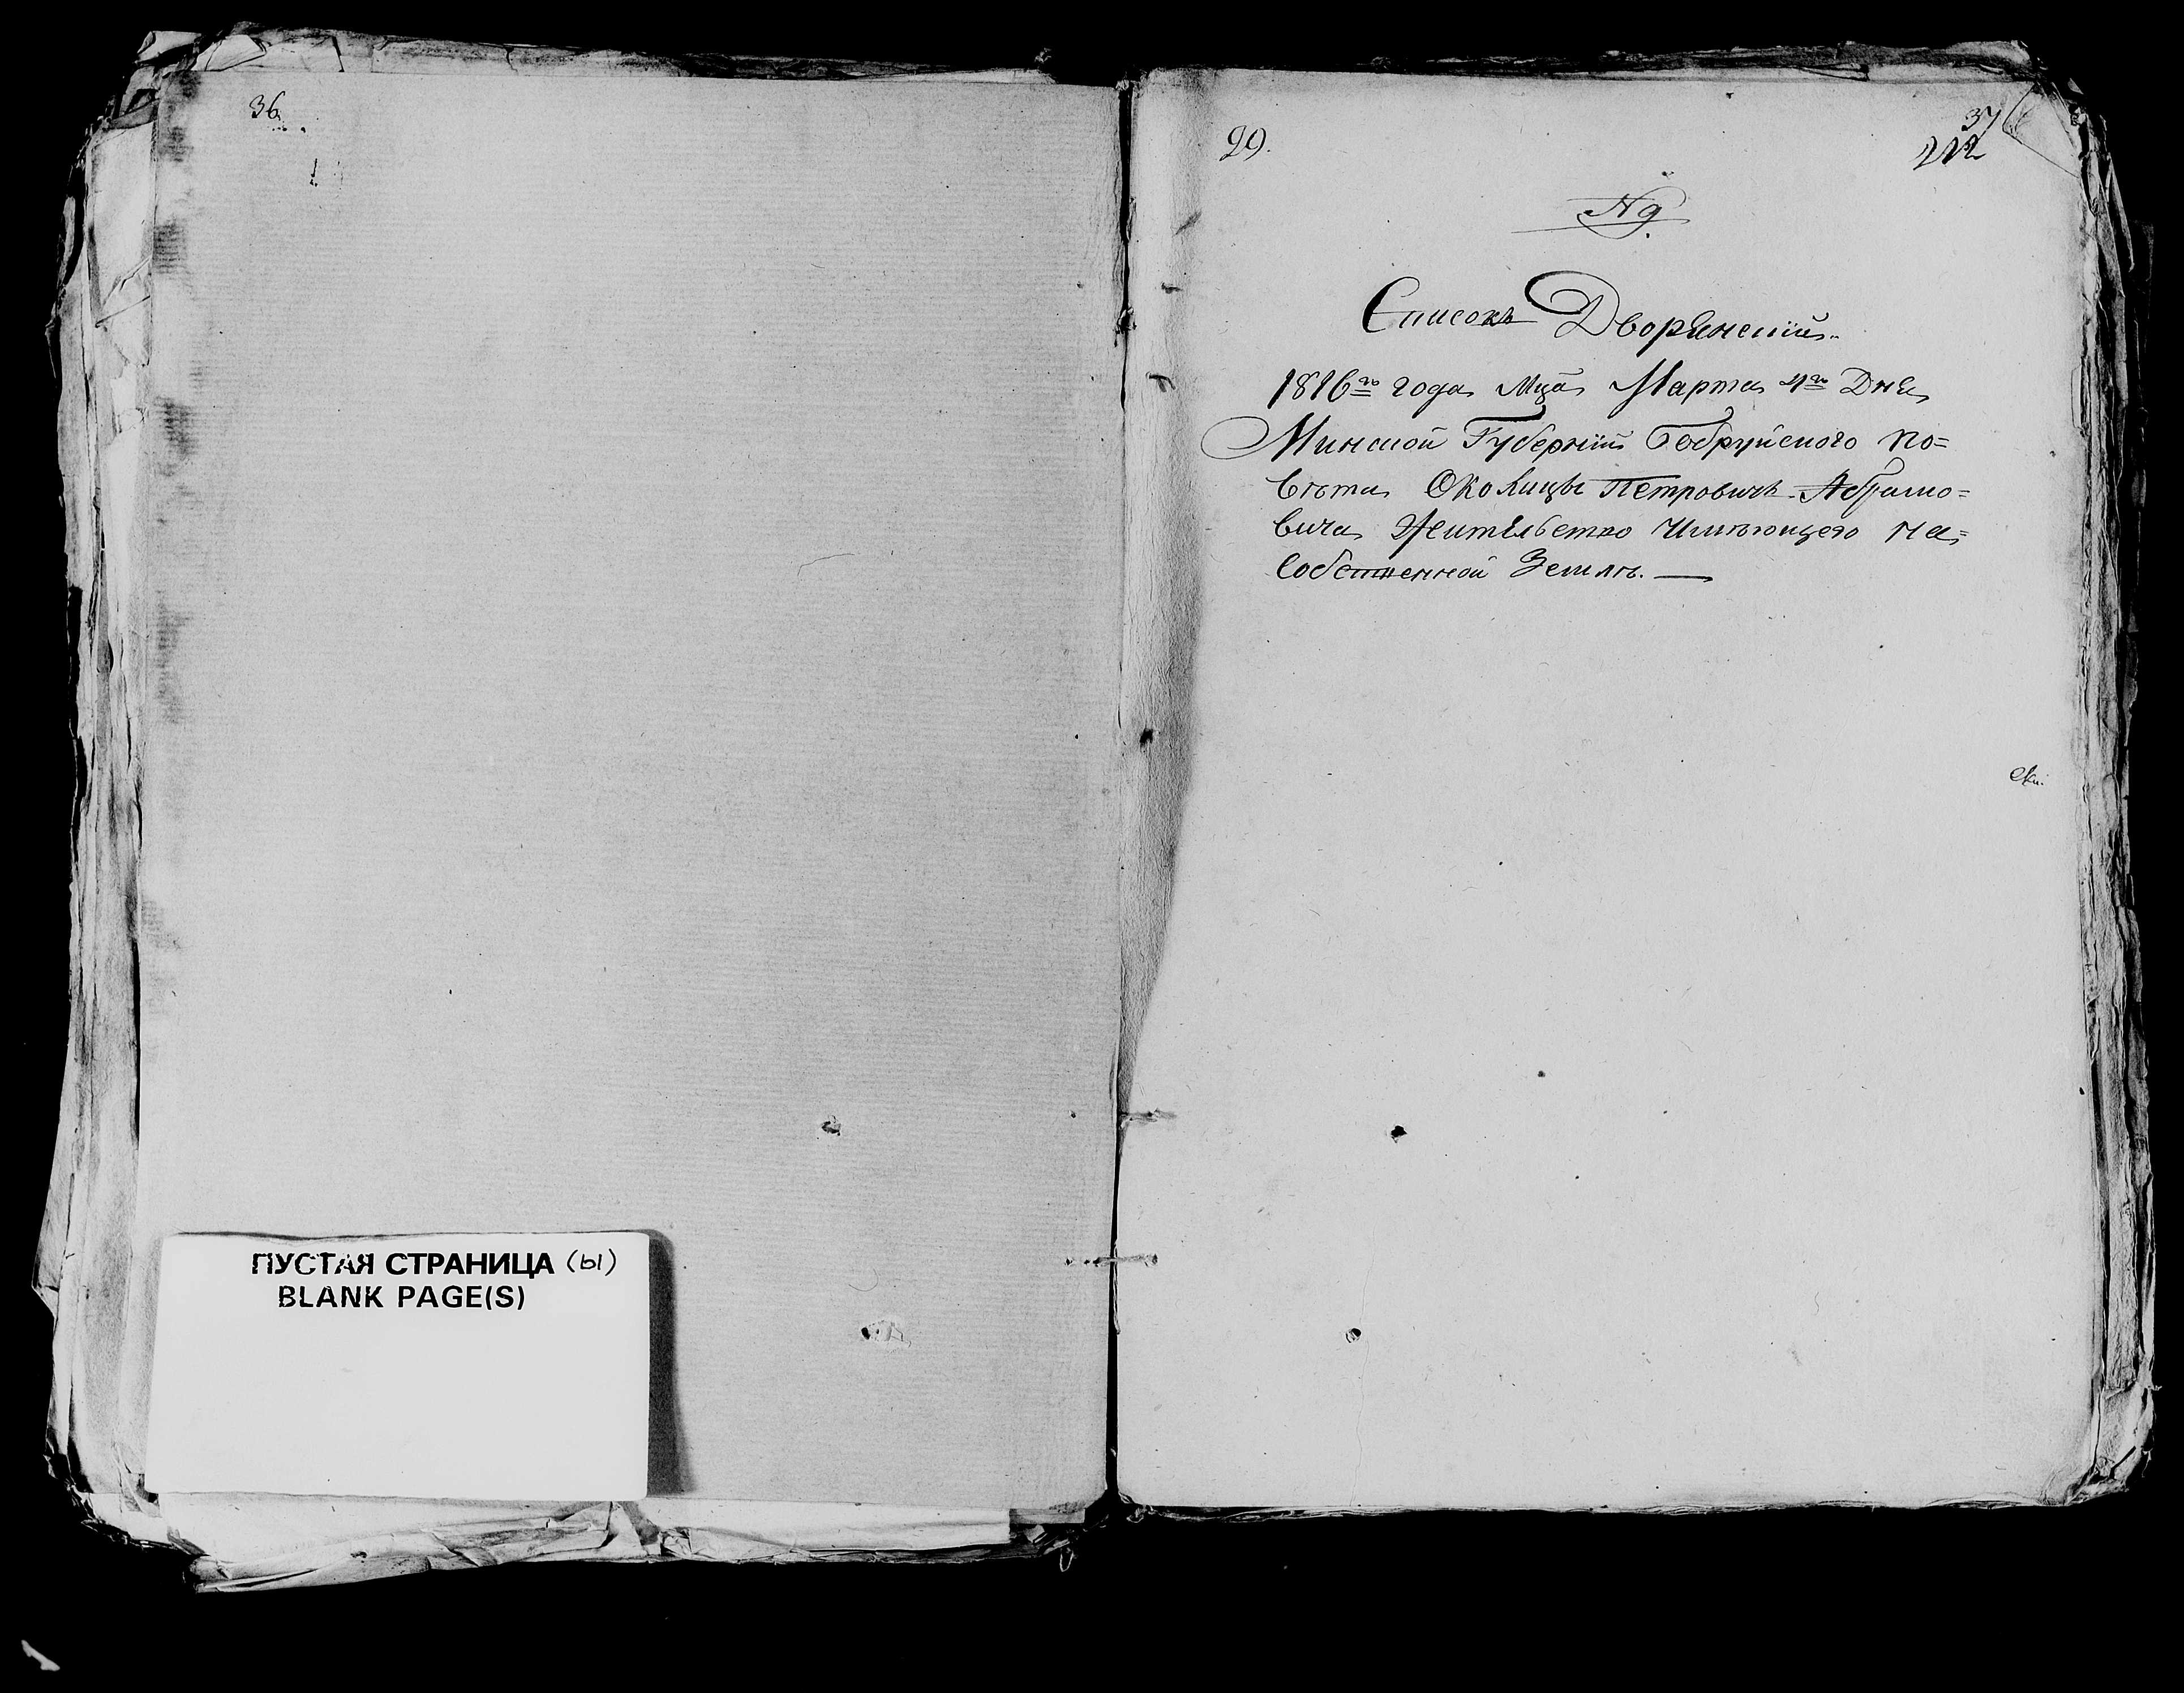 36
ПУСТАЯ СТРАНИЦА (ы)
BLANK PAGE(S)
37
29.
212
№ 9.
Списокъ Дворянскій
1816го года Мца Марта 4го Дня
Минской Губерніи Бобруйского по=
вѣта Околицы Петровичъ Абрамо=
вича Жительство Имѣющего на
собственной Землѣ. —